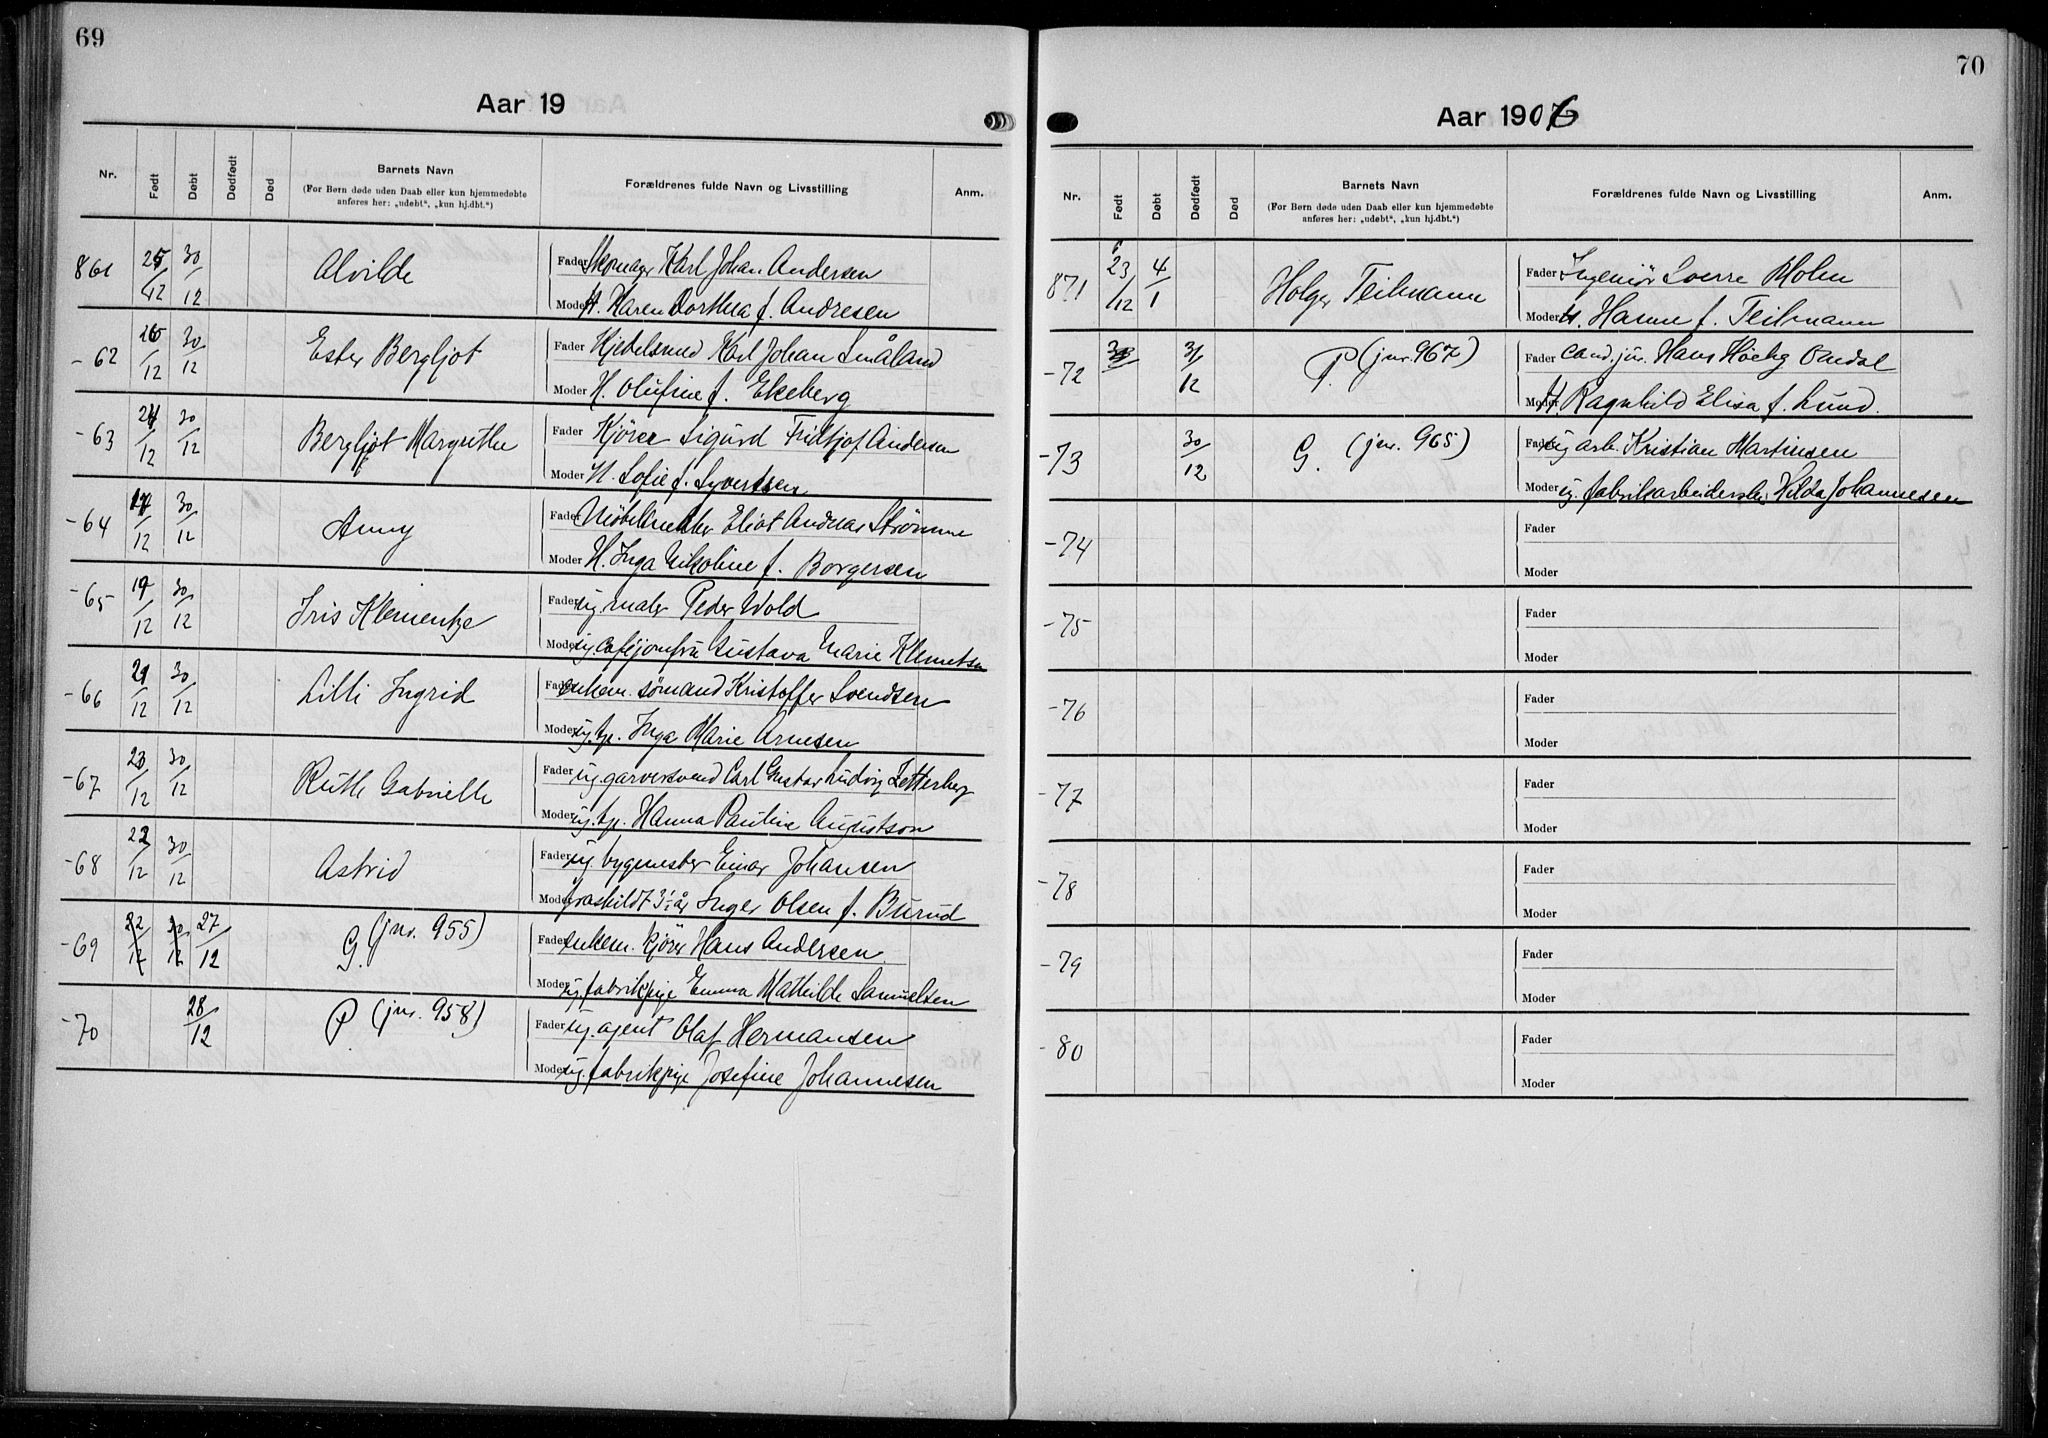 69
Aar 19
Nr. Født Døbt Dødfødt Død Barnets Navn Forældrenes fulde Navn og Livsstilling Anm.
(For Børn døde uden Daab eller kun hjemmedøbte
anføres her: „udebt“, „kun hj.dbt.“)
861 25/12 30/12 Alvilde Fader Skomager Karl Johan Andersen
Moder H. Karen Dorthea f. Andresen
-62 30/12 Ester Bergljot Fader Kjedelsmed Karl Johan Småland
Moder H. Olufine f. Ekeberg
-63 30/12 Bergljot Margrethe Fader Kjører Sigurd Fridtjof Andersen
Moder H. Sofie f. Syvertsen
-64 30/12 Anny Fader Eliot Andreas Strømme
Moder H. Inga Nikoline f. Borgersen
-65 19/12 30/12 Iris Fader ug. maler Peder Wold
Moder ug. cafejomfru Gustava Marie Klemetsen
-66 21/12 30/12 Lilli Ingrid Fader enkem. sømand Kristoffer Svendsen
Moder ug. tp. Inga Marie Arnesen
-67 23/12 30/12 Ruth Gabrielle Fader ug. garversvend Carl Gustav Ludvig Zetterberg
Moder ug. tp. Hanna Pauline Augustson
-68 22/12 30/12 Astrid Fader ug. bygmester Einar Johansen
Moder fraskildt 3½ år Inger Olsen f. Burud
-69 22/12 30/12 27/12 G. (jnr. 955) Fader enkem. kjører Hans Andersen
Moder ug. fabrikpige Emma Mathilde Samuelsen
-70 28/12 P (jnr. 958) Fader ug. agent Olaf Hermansen
Moder ug. fabrikpige Josefine Johannesen
70
Aar 1906
Nr. Født Døbt Dødfødt Død Barnets Navn Forældrenes fulde Navn og Livsstilling Anm.
(For Børn døde uden Daab eller kun hjemmedøbte
anføres her: „udebt“, „kun hj.dbt.“)
871 6 23/12 4/1 Holger Teilmann Fader Ingeniør Sverre Holm
Moder H. Hanne f. Teilmann
-72 31/12 P. (jnr. 967) Fader cand. jur. Hans Høeg Omdal
Moder H. Ragnhild Elisa f. Lund.
-73 30/12 G. (jnr. 965) Fader ug arb. Kristian Martinsen
Moder ug. fabrikarbeiderske Hilda Johannesen
-74 Fader
Moder
-75 Fader
Moder
-76 Fader
Moder
-77 Fader
Moder
-78 Fader
Moder
-79 Fader
Moder
-80 Fader
Moder